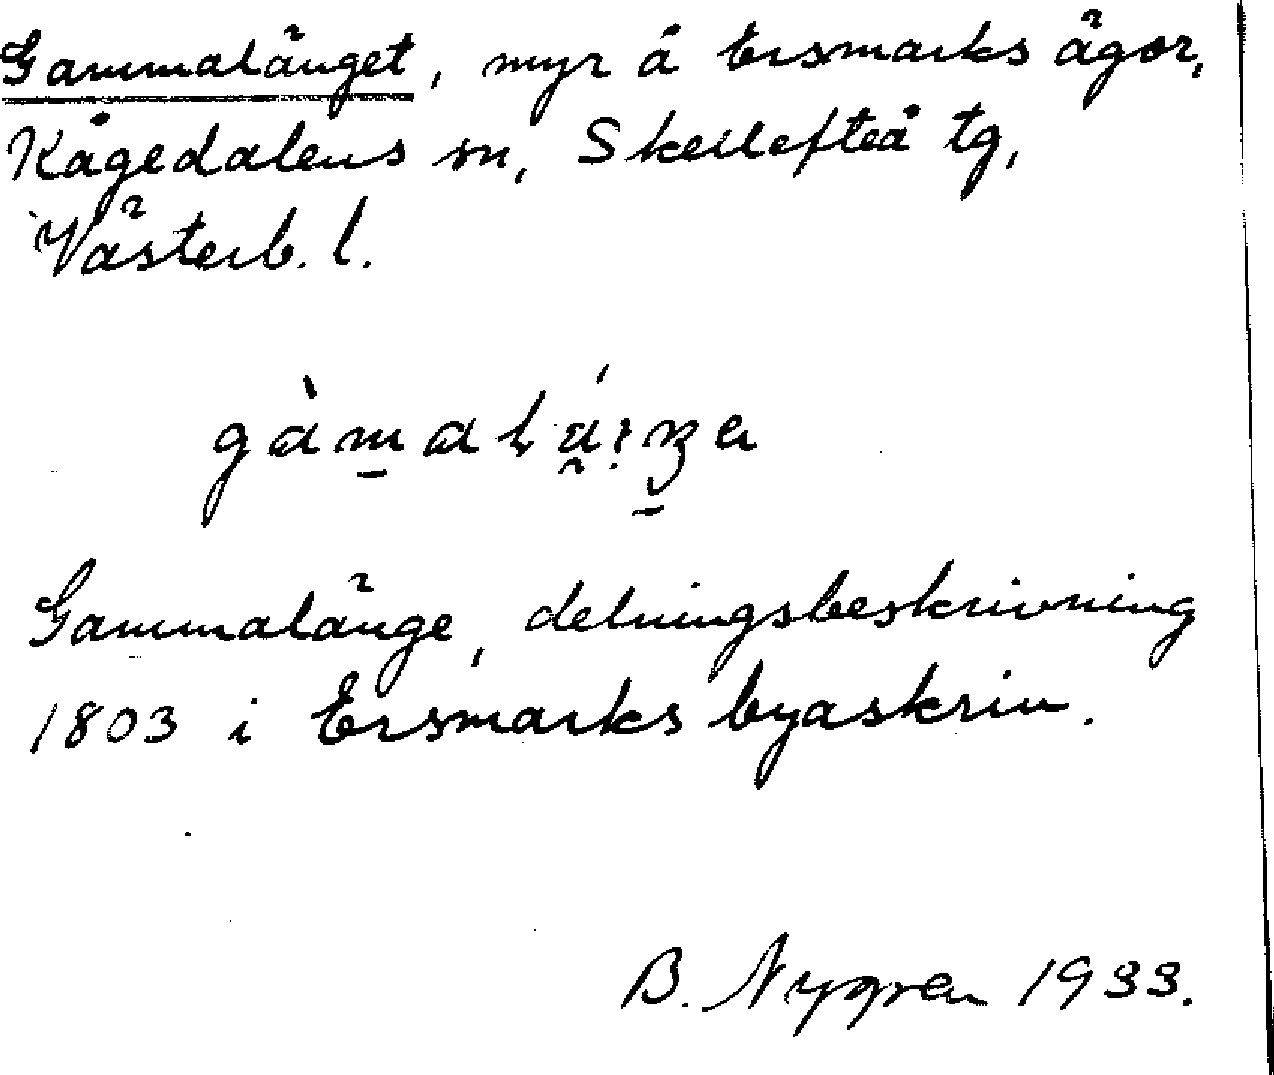 Gammalänget, myr å Ersmarks ägor,
Kågedalens sn, Skellefteå tg,
Västerb. l.
Gammalänge, delningsbeskrivning
1803 i Ersmarks byaskrin.
B. Nygren 1933.